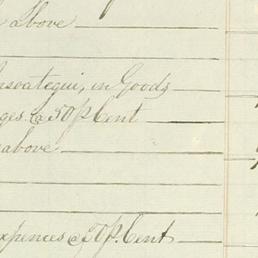 Above
in Goods
ges @ 50 p Cent
above
xpences @ 50 p. Cent